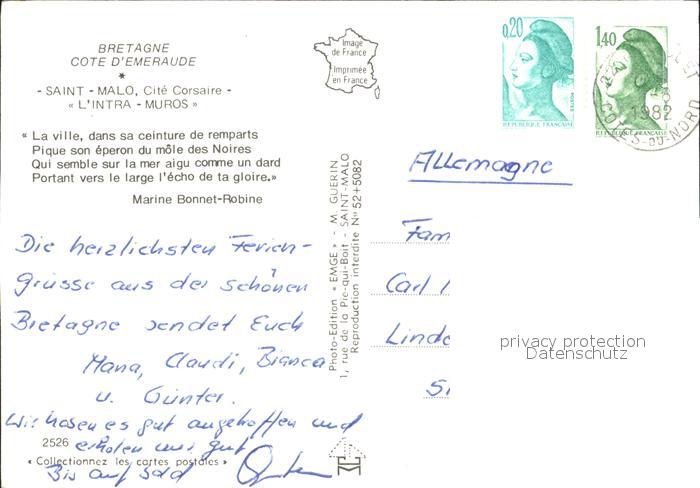 BRETAGNE
COTE D'EMERAUDE
*
- SAINT - MALO, Cité Corsaire -
- « L'INTRA - MUROS »
« La ville, dans sa ceinture de remparts
Pique son éperon du môle des Noires
Qui semble sur la mer aigu comme un dard
Portant vers le large l'écho de ta gloire.»
Marine Bonnet-Robine
Die herzlichsten Ferien-
grüsse aus der schönen
Bretagne sendet Euch
Mana, Claudi, Bianca
u. Günter.
Wir haben es gut angetroffen und
erholen uns gut
Bis auf bald
2526
« Collectionnez les cartes postales »
Image
de France
Imprimée
en France
Photo-Edition « EMGE » - M. GUERIN
1, rue de la Pie-qui-Boit - SAINT-MALO
Reproduction interdite N° 52+5082
0,20
POSTES
REPUBLIQUE FRANÇAISE
1,40
REPUBLIQUE FRANÇAISE
1982
COTES-DU-NORD
Allemagne
Fam
Carl
Linde
privacy protection
Datenschutz